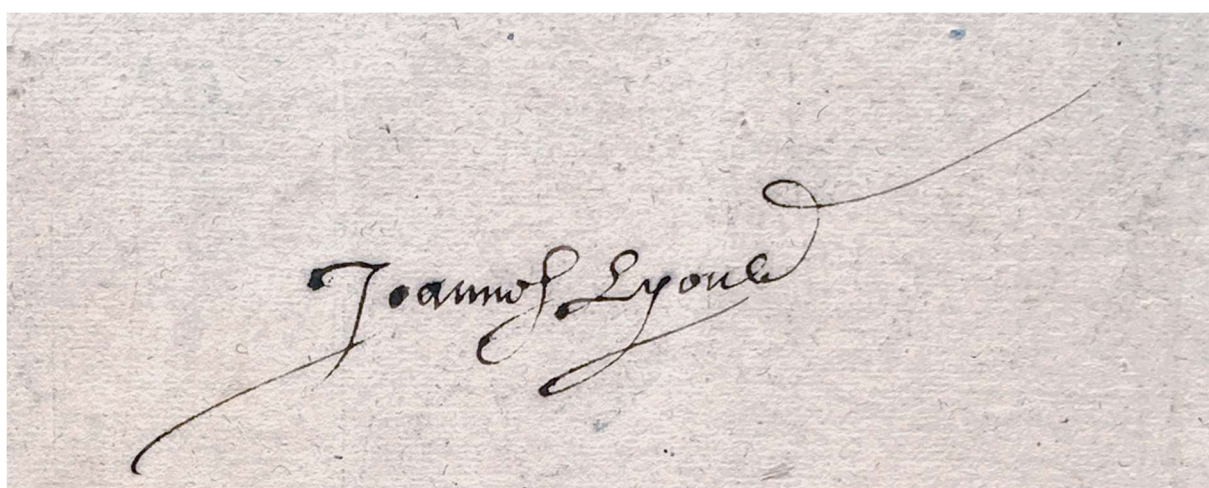 Joannes Lyons